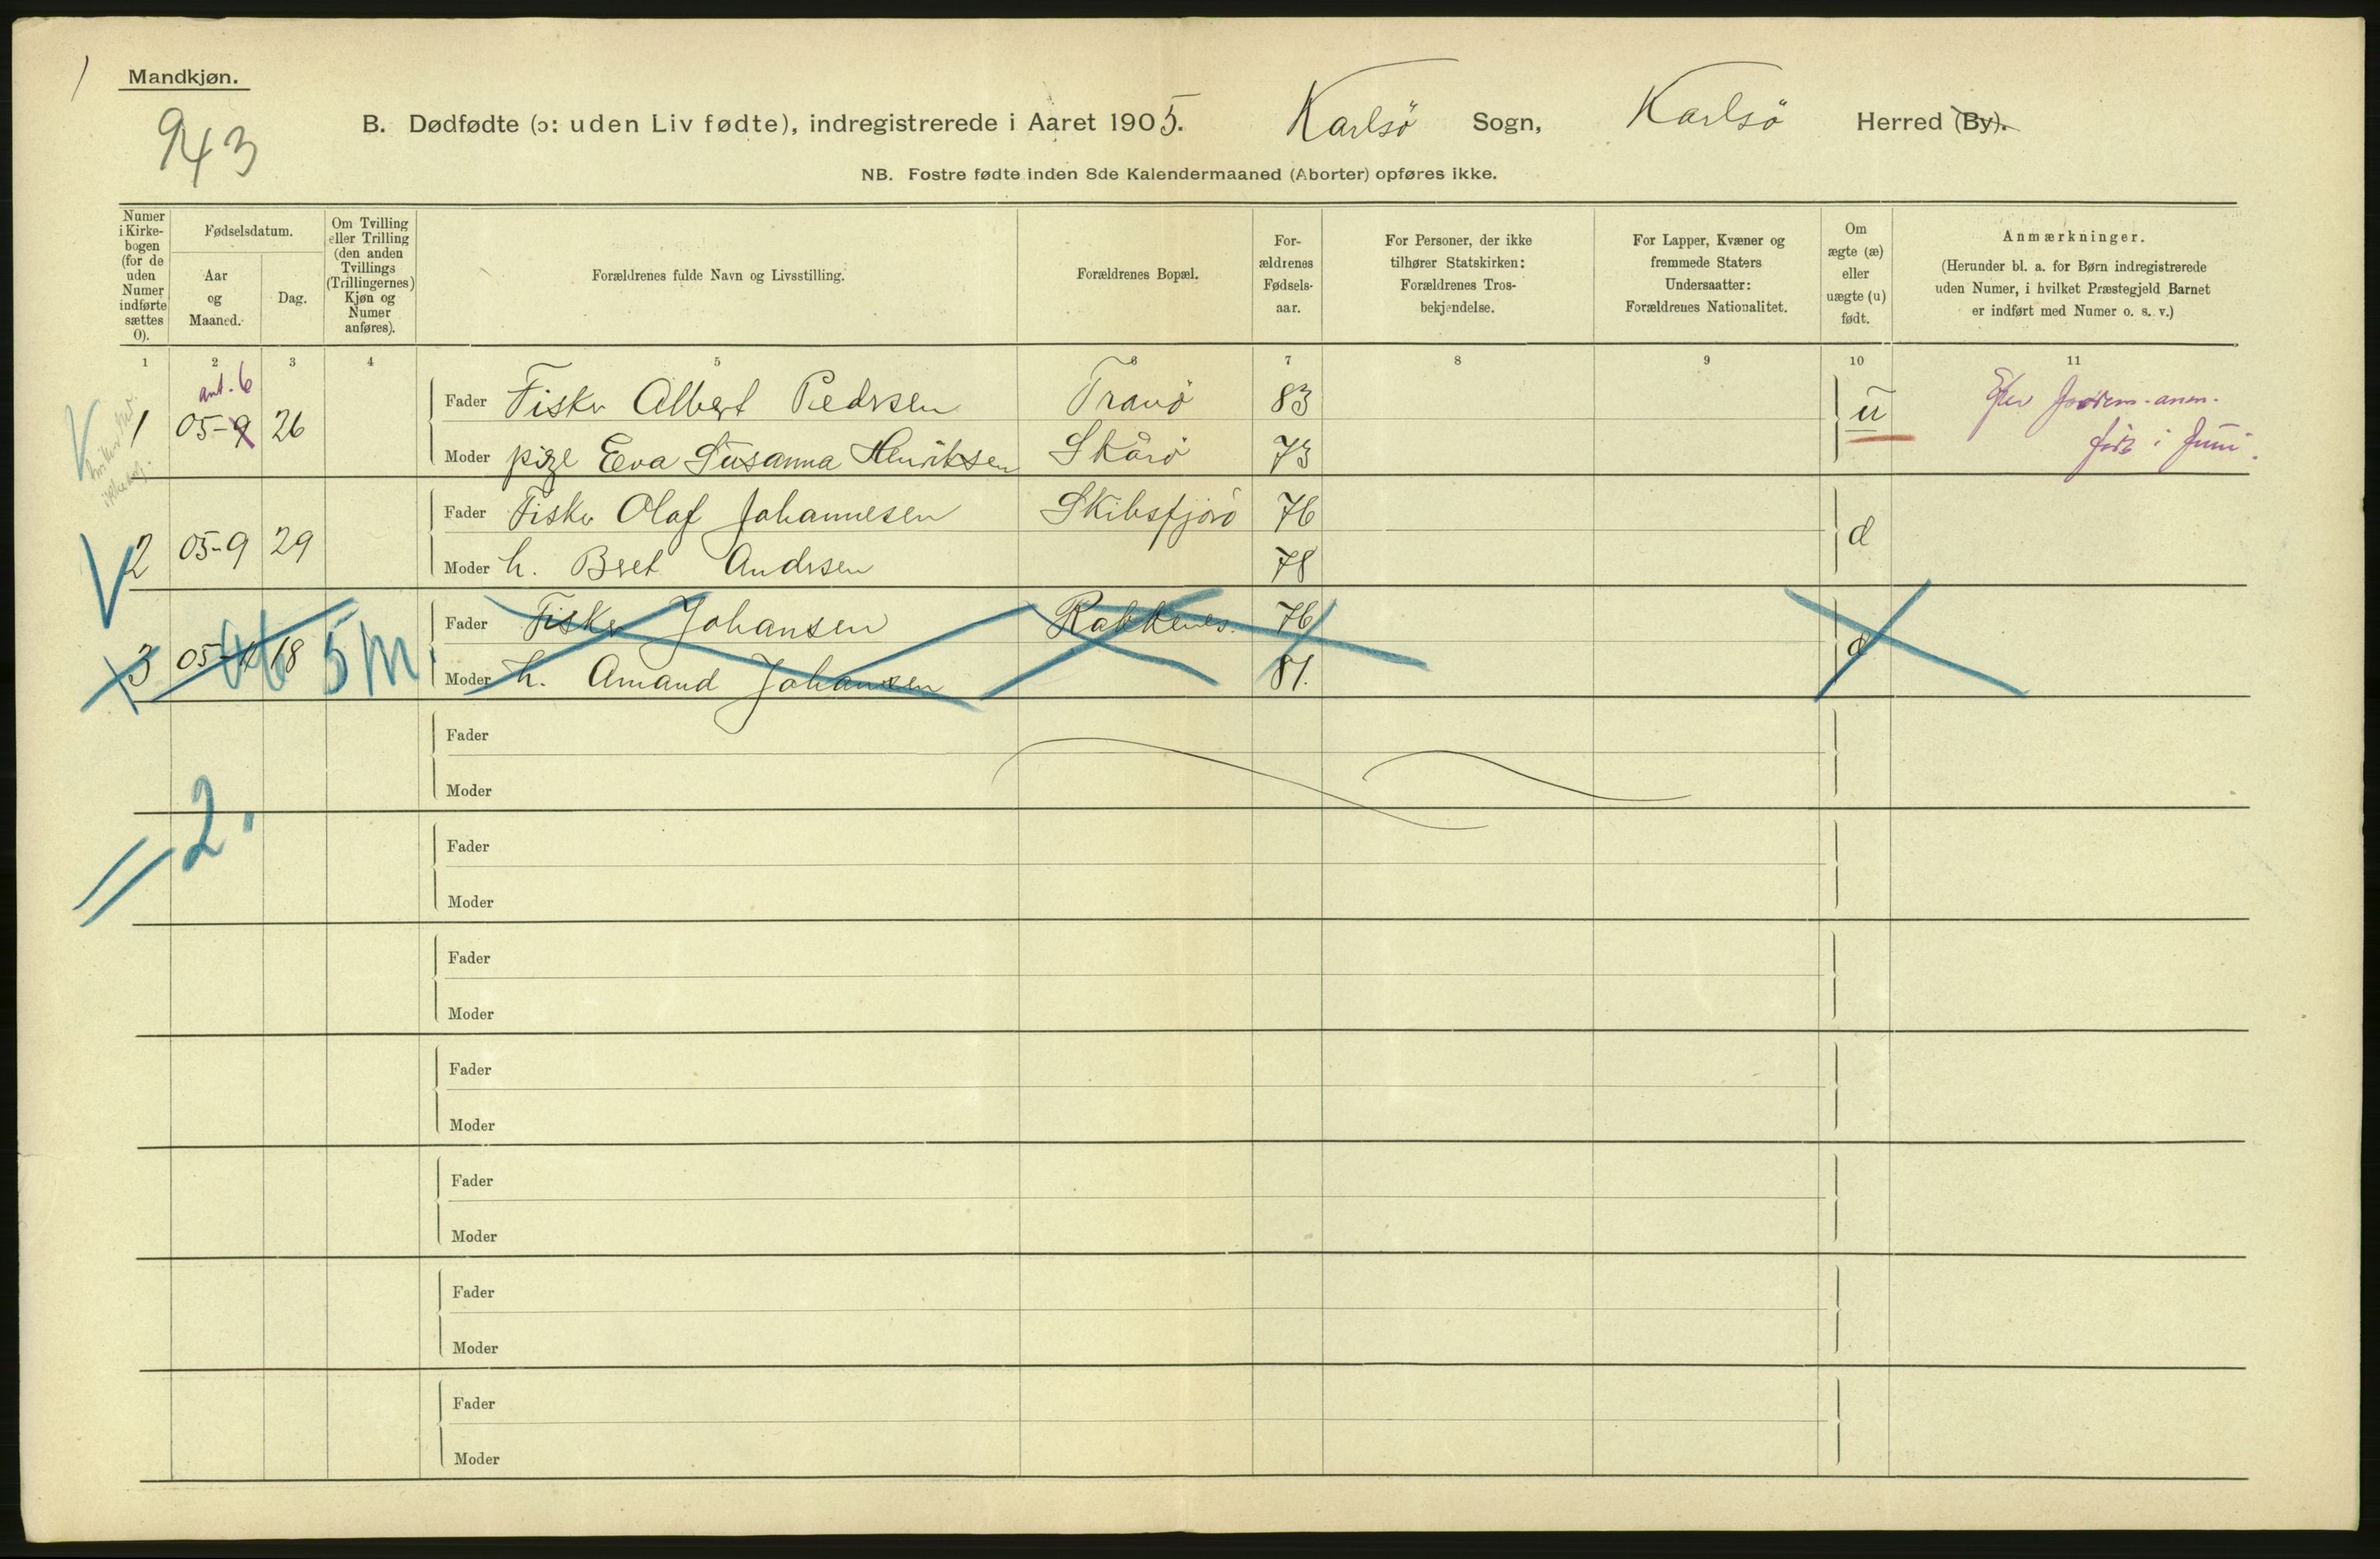 Mandkjøn.
943
B. Dødfødte (ɔ: uden Liv fødte), indregistrerede i Aaret 1905. Karlsö Sogn, Karlsö Herred (By).
NB. Fostre fødte inden 8de Kalendermaaned (Aborter) opføres ikke.
Numer i Kirke-bogen (for de uden Numer indførte sættes 0).
Fødselsdatum.
Aar og Maaned.
Dag.
Om Tvilling eller Trilling (den anden Tvillings (Trillingernes) Kjøn og Numer anføres).
Forældrenes fulde Navn og Livsstilling.
Forældrenes Bopæl.
For-ældrenes Fødsels-aar.
For Personer, der ikke tilhører Statskirken: Forældrenes Tros-bekjendelse.
For Lapper, Kvæner og fremmede Staters Undersaatter: Forældrenes Nationalitet.
Om ægte (æ) eller uægte (u) født.
Anmærkninger.
(Herunder bl. a. for Børn indregistrerede uden Numer, i hvilket Præstegjeld Barnet er indført med Numer o. s. v.)
1 2 3 4 5 6 7 8 9 10 11
ant. 6
Fader Fisker Albert Pedersen Tranö 83
1 05-9 26 u
Moder pige Eva Susanna Henriksen Skårö 73
født i Juni.
Fader Fisker Olaf Johannesen Skibsfjord 76
2 05-9 29
Moder h. Beret Andersen 78
Fader Fisker Johansen 76
3 05- 18 5 M
Moder h. Amand Johansen 81.
Fader
Moder
= 2
Fader
Moder
Fader
Moder
Fader
Moder
Fader
Moder
Fader
Moder
Fader
Moder